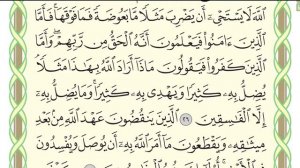 ٱللَّهَ لَا يَسْتَحْىِۦٓ أَن يَضْرِبَ مَثَلًا مَّا بَعُوضَةً فَمَا فَوْقَهَا فَأَمَّا
ٱلَّذِينَ ءَامَنُوا۟ فَيَعْلَمُونَ أَنَّهُ ٱلْحَقُّ مِن رَّبِّهِمْ وَأَمَّا
ٱلَّذِينَ كَفَرُوا۟ فَيَقُولُونَ مَاذَآ أَرَادَ ٱللَّهُ بِهَٰذَا مَثَلًا
يُضِلُّ بِهِۦ كَثِيرًا وَيَهْدِى بِهِۦ كَثِيرًا وَمَا يُضِلُّ بِهِۦٓ
إِلَّا ٱلْفَٰسِقِينَ ٢٦ ٱلَّذِينَ يَنقُضُونَ عَهْدَ ٱللَّهِ مِنۢ بَعْدِ
مِيثَٰقِهِۦ وَيَقْطَعُونَ مَآ أَمَرَ ٱللَّهُ بِهِۦٓ أَن يُوصَلَ وَيُفْسِدُونَ